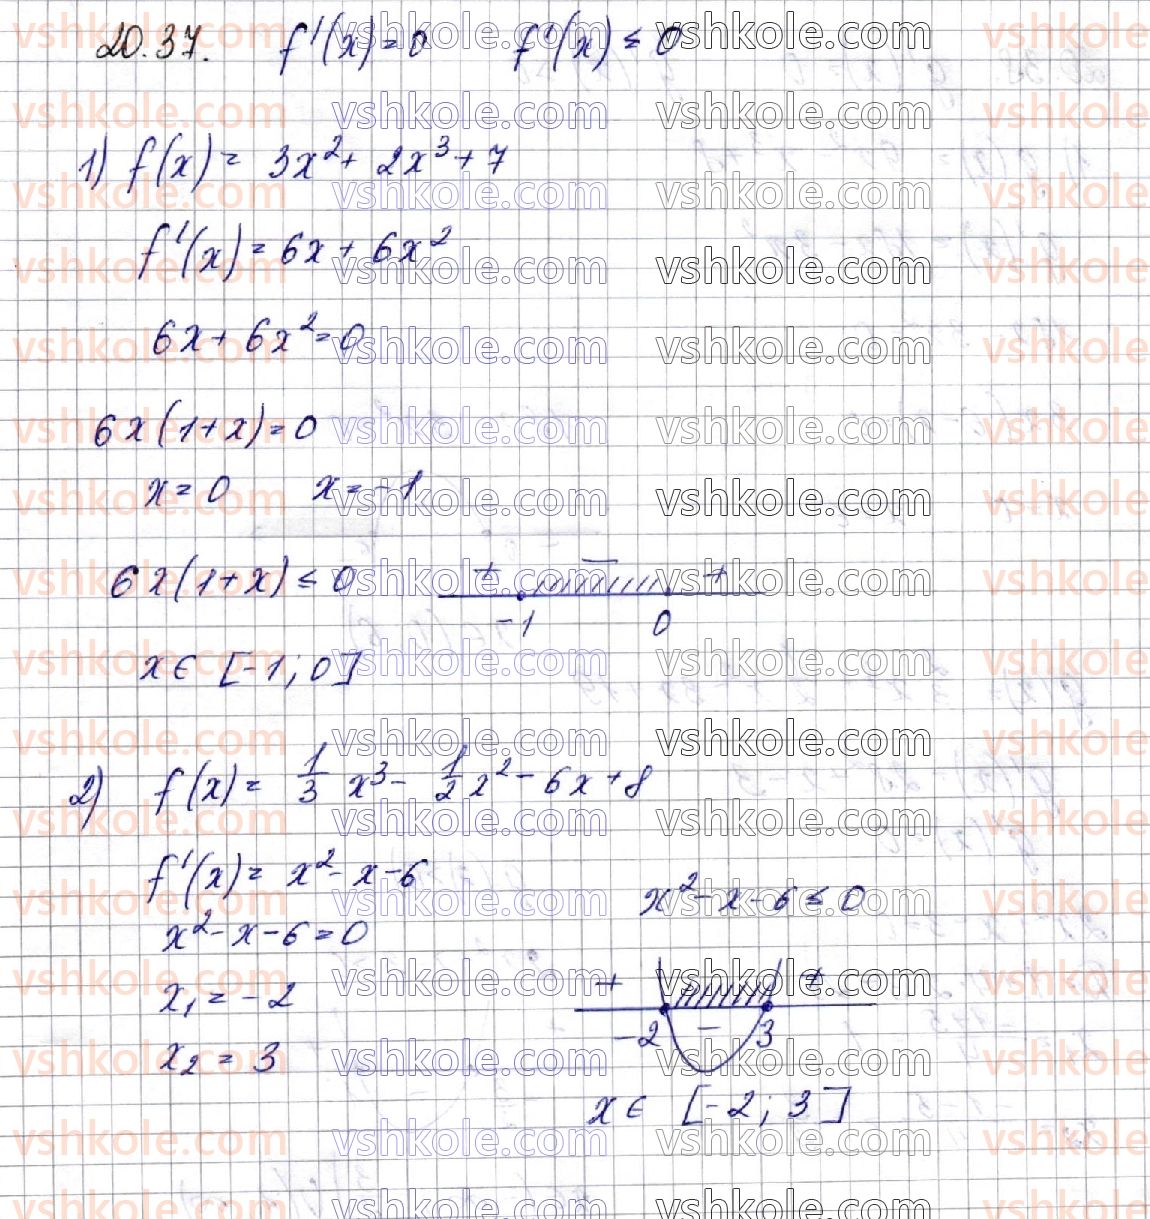 20.37. f'(x) = 0 f'(x) ≤ 0
1) f(x) = 3x² + 2x³ + 7
f'(x) = 6x + 6x²
6x + 6x² = 0
6x(1+x) = 0
x = 0 x = -1
6x(1+x) ≤ 0 + − +
-1 0
x ∈ [-1; 0]
2) f(x) = 1/3 x³ - 1/2 x² - 6x + 8
f'(x) = x² - x - 6
x² - x - 6 ≤ 0
x² - x - 6 = 0
x₁ = -2
x₂ = 3
+ − +
-2 3
x ∈ [-2; 3]
vshkole.com